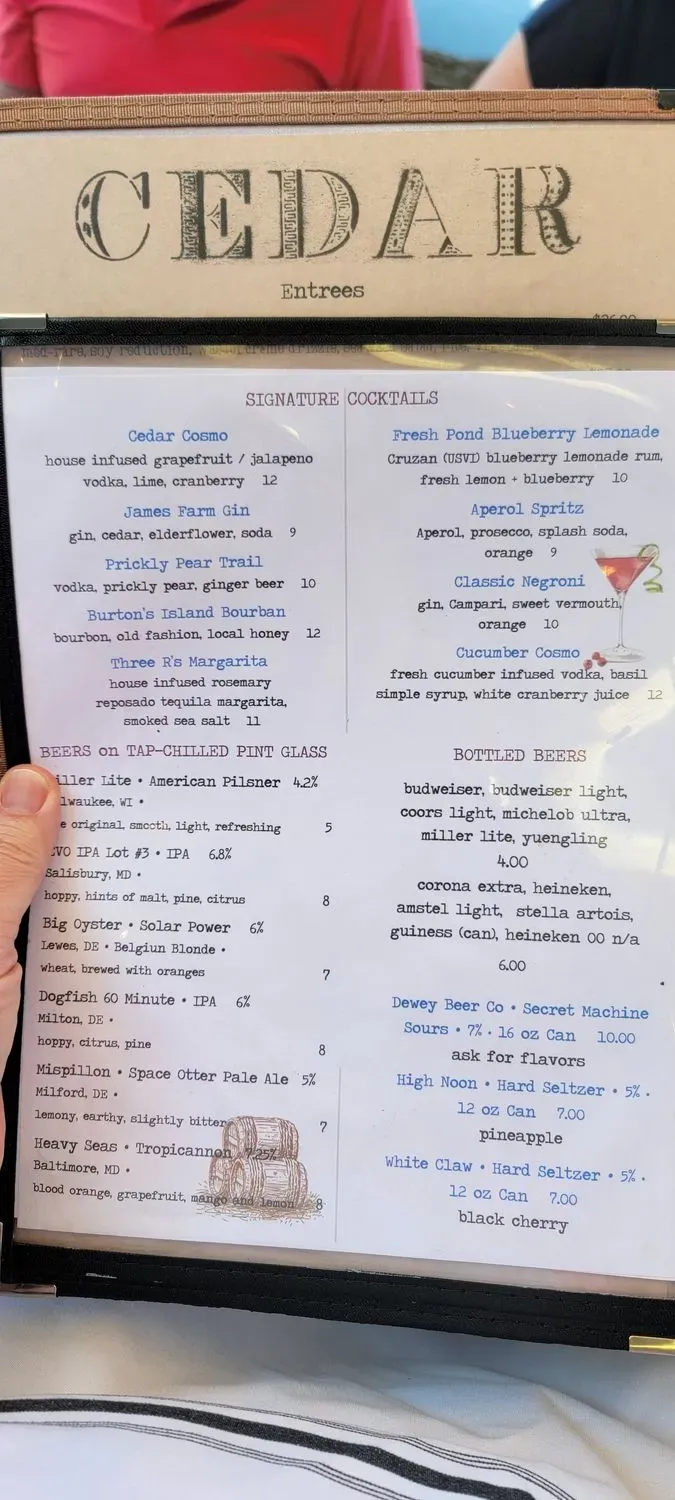 CEDAR
Entrees
SIGNATURE COCKTAILS
Cedar Cosmo
house infused grapefruit / jalapeno
vodka, lime, cranberry 12
James Farm Gin
gin, cedar, elderflower, soda 9
Prickly Pear Trail
vodka, prickly pear, ginger beer 10
Burton's Island Bourban
bourbon, old fashion, local honey 12
Three R's Margarita
house infused rosemary
reposado tequila margarita,
smoked sea salt 11
Fresh Pond Blueberry Lemonade
Cruzan (USVI) blueberry lemonade rum,
fresh lemon + blueberry 10
Aperol Spritz
Aperol, prosecco, splash soda,
orange 9
Classic Negroni
gin, Campari, sweet vermouth,
orange 10
Cucumber Cosmo
fresh cucumber infused vodka, basil
simple syrup, white cranberry juice 12
BEERS on TAP-CHILLED PINT GLASS
iller Lite • American Pilsner 4.2%
lwaukee, WI •
e original, smooth, light, refreshing 5
VO IPA Lot #3 • IPA 6.8%
Salisbury, MD •
hoppy, hints of malt, pine, citrus 8
Big Oyster • Solar Power 6%
Lewes, DE • Belgiun Blonde •
wheat, brewed with oranges 7
Dogfish 60 Minute • IPA 6%
Milton, DE •
hoppy, citrus, pine 8
Mispillon • Space Otter Pale Ale 5%
Milford, DE •
lemony, earthy, slightly bitter 7
Heavy Seas • Tropicannon 7.25%
Baltimore, MD •
blood orange, grapefruit, mango and lemon 8
BOTTLED BEERS
budweiser, budweiser light,
coors light, michelob ultra,
miller lite, yuengling
4.00
corona extra, heineken,
amstel light, stella artois,
guiness (can), heineken 00 n/a
6.00
Dewey Beer Co • Secret Machine
Sours • 7% • 16 oz Can 10.00
ask for flavors
High Noon • Hard Seltzer • 5% •
12 oz Can 7.00
pineapple
White Claw • Hard Seltzer • 5% •
12 oz Can 7.00
black cherry